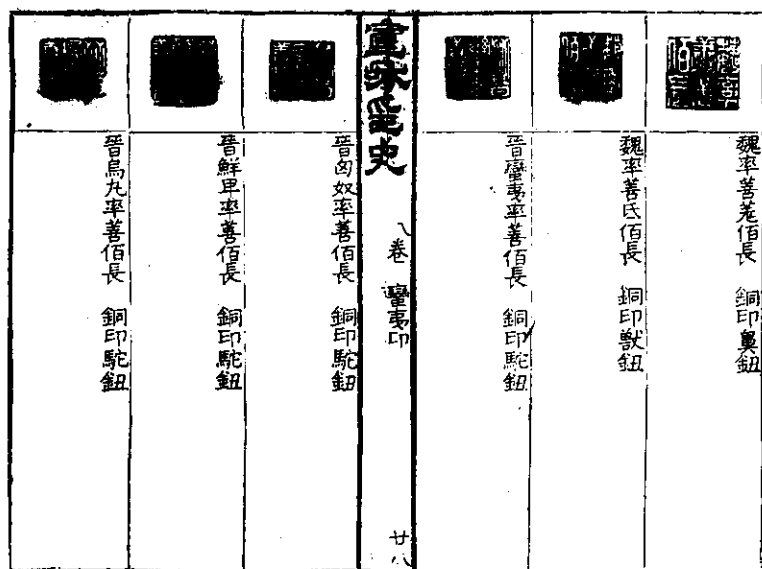 魏率善羌佰長 銅印鼻鈕
魏率善氐佰長 銅印獸鈕
晉蠻夷率善佰長 銅印駝鈕
宣和印史 八卷 蠻夷印 廿八
晉匈奴率善佰長 銅印駝鈕
晉鮮卑率善佰長 銅印駝鈕
晉烏丸率善佰長 銅印駝鈕